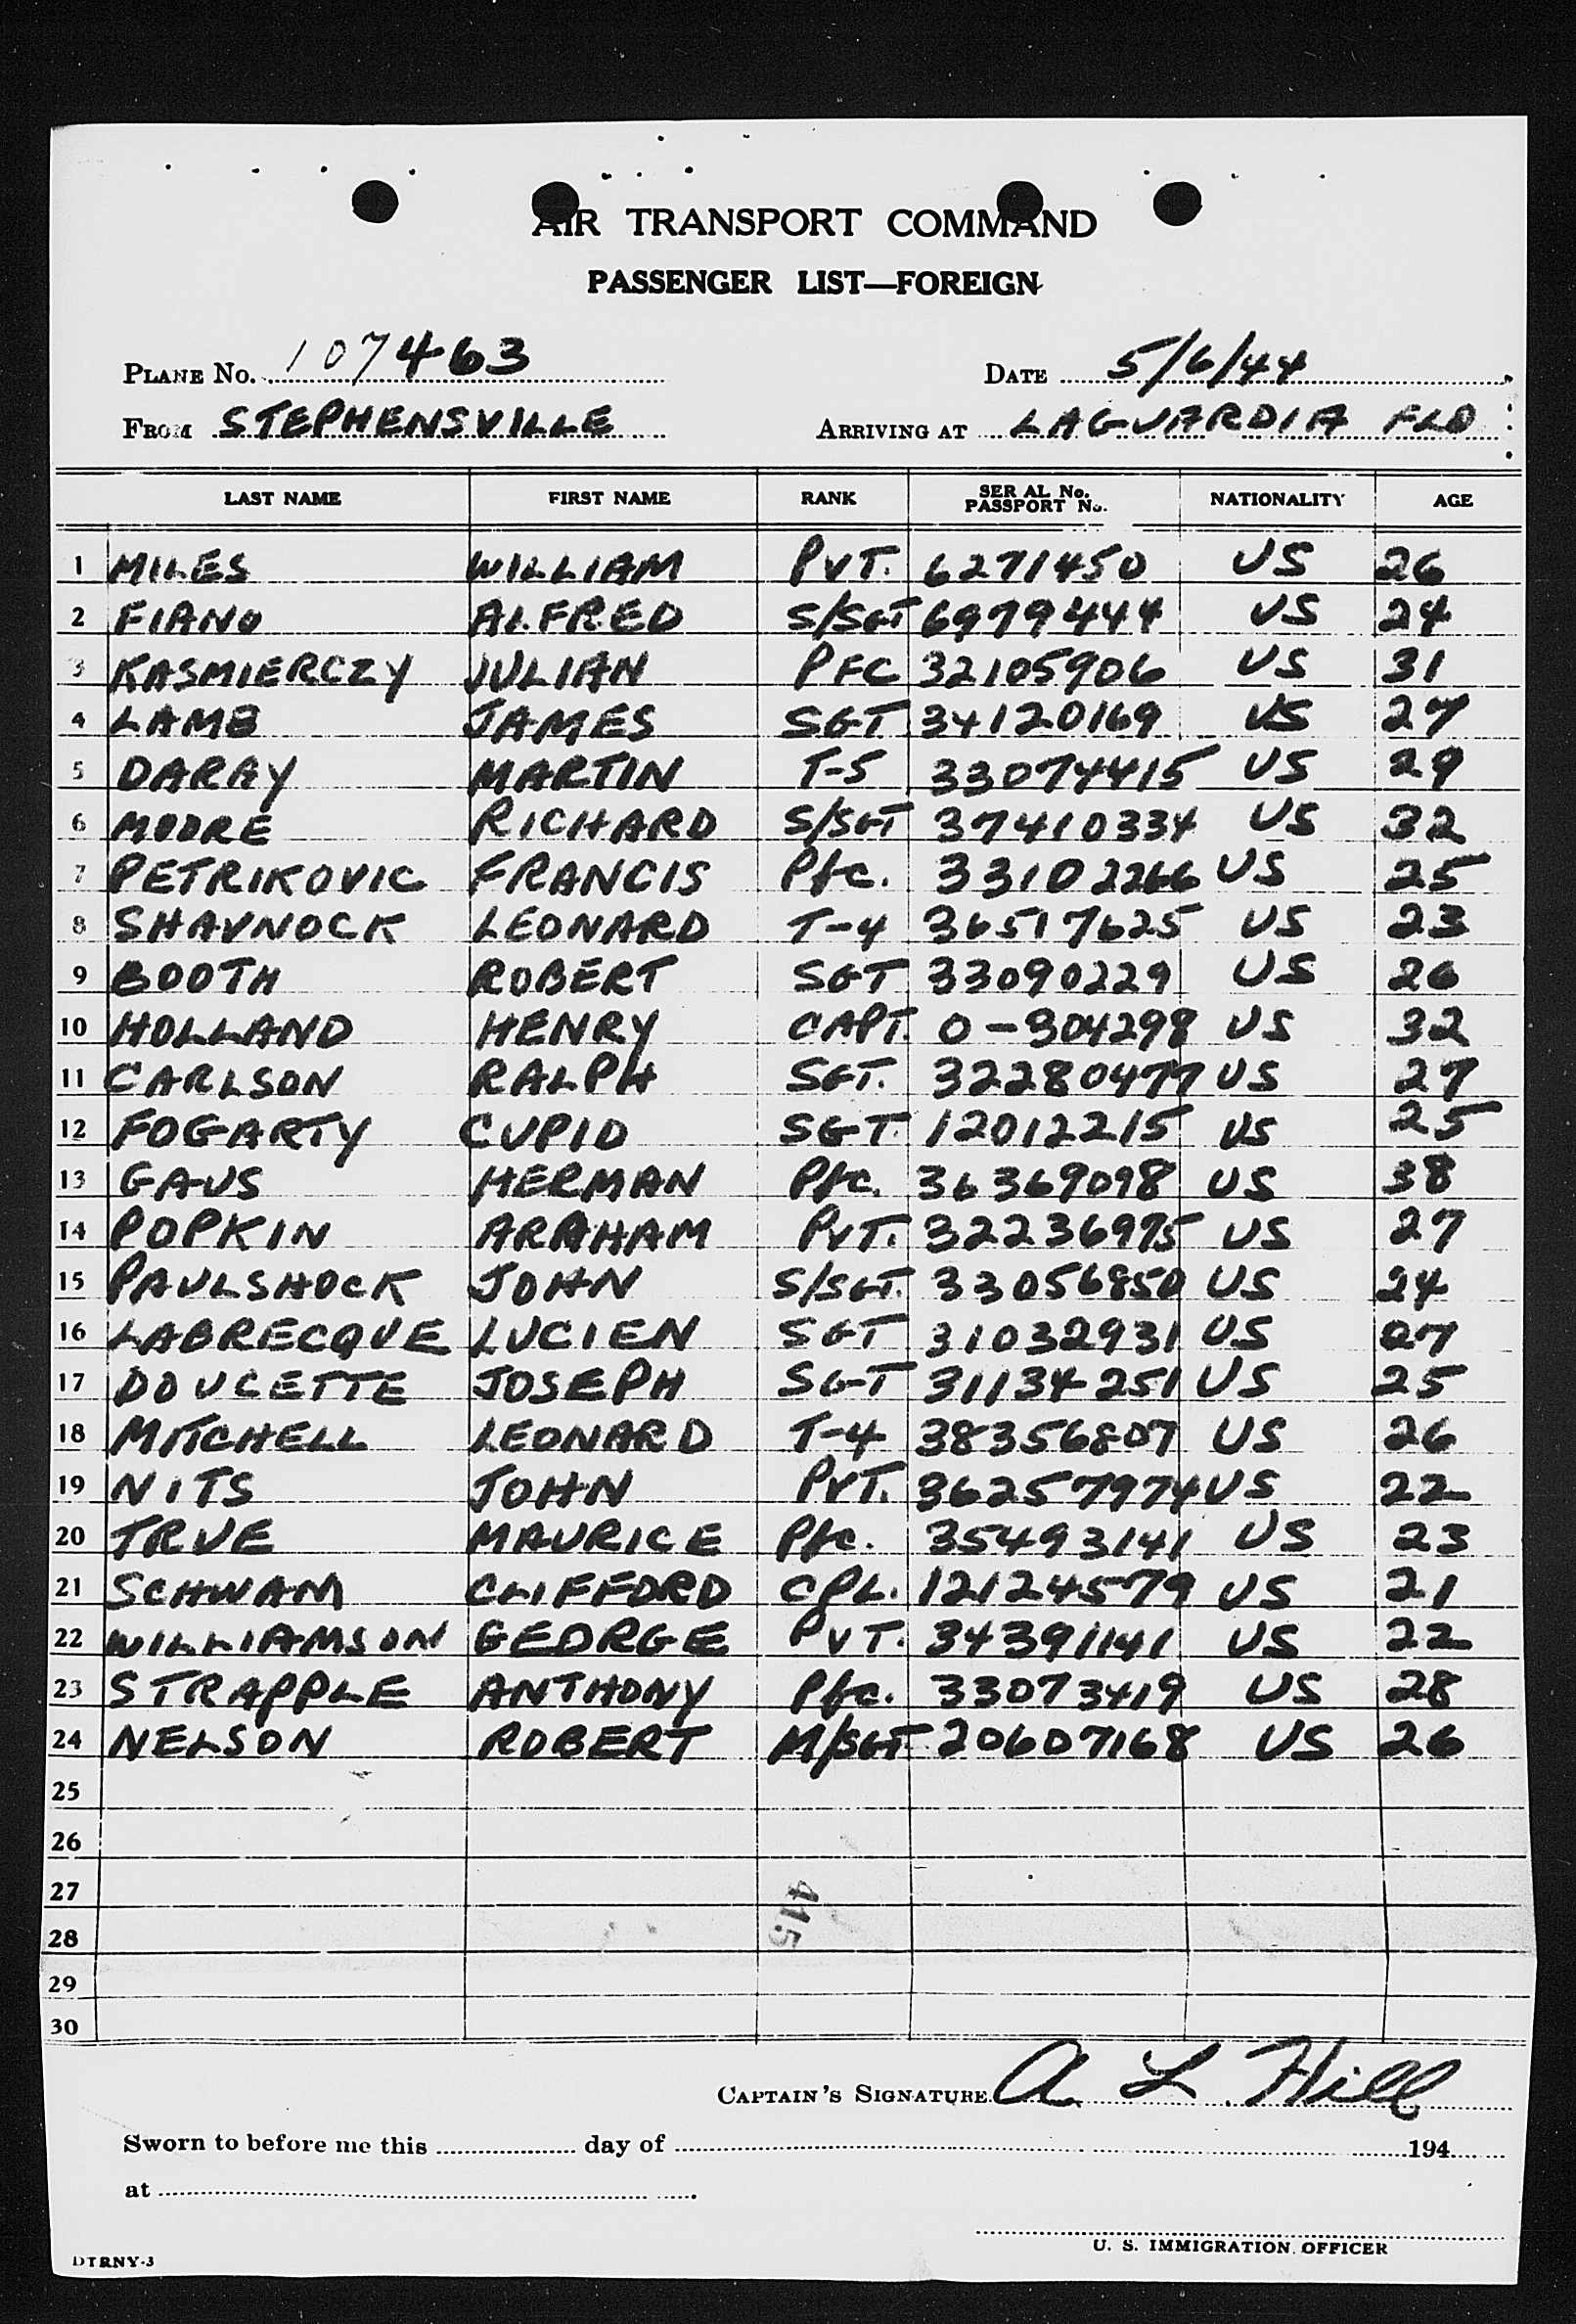 AIR TRANSPORT COMMAND
PASSENGER LIST—FOREIGN
PLANE NO. 107463 DATE 5/6/44
FROM STEPHENSVILLE ARRIVING AT LAGUARDIA FLD
LAST NAME FIRST NAME RANK SERIAL No. PASSPORT No. NATIONALITY AGE
1 MILES WILLIAM PVT. 6271450 US 26
2 FIANO ALFRED S/SGT 6979444 US 24
3 KASMIERCZY JULIAN PFC 32105906 US 31
4 LAMB JAMES SGT 34120169 US 27
5 DARAY MARTIN T-5 33074415 US 29
6 MOORE RICHARD S/SGT 37410334 US 32
7 PETRIKOVIC FRANCIS Pfc. 33102266 US 25
8 SHAVNOCK LEONARD T-4 36517625 US 23
9 BOOTH ROBERT SGT 33090229 US 26
10 HOLLAND HENRY CAPT. O-304298 US 32
11 CARLSON RALPH SGT. 32280477 US 27
12 FOGARTY CUPID SGT. 12012215 US 25
13 GAUS HERMAN Pfc. 36369098 US 38
14 POPKIN ARAHAM PVT. 32236975 US 27
15 PAULSHOCK JOHN S/SGT. 33056850 US 24
16 LABRECQUE LUCIEN SGT 31032931 US 27
17 DOUCETTE JOSEPH SGT 31134251 US 25
18 MITCHELL LEONARD T-4 38356807 US 26
19 NITS JOHN PVT. 36257974 US 22
20 TRUE MAURICE Pfc. 35493141 US 23
21 SCHWAM CLIFFORD CPL. 12124579 US 21
22 WILLIAMSON GEORGE PVT. 34391141 US 22
23 STRAPPLE ANTHONY Pfc. 33073419 US 28
24 NELSON ROBERT M/SGT 20607168 US 26
25
26
27
28
415
29
30
CAPTAIN'S SIGNATURE A L Hill
Sworn to before me this day of 194
at
U. S. IMMIGRATION OFFICER
DTRNY-3